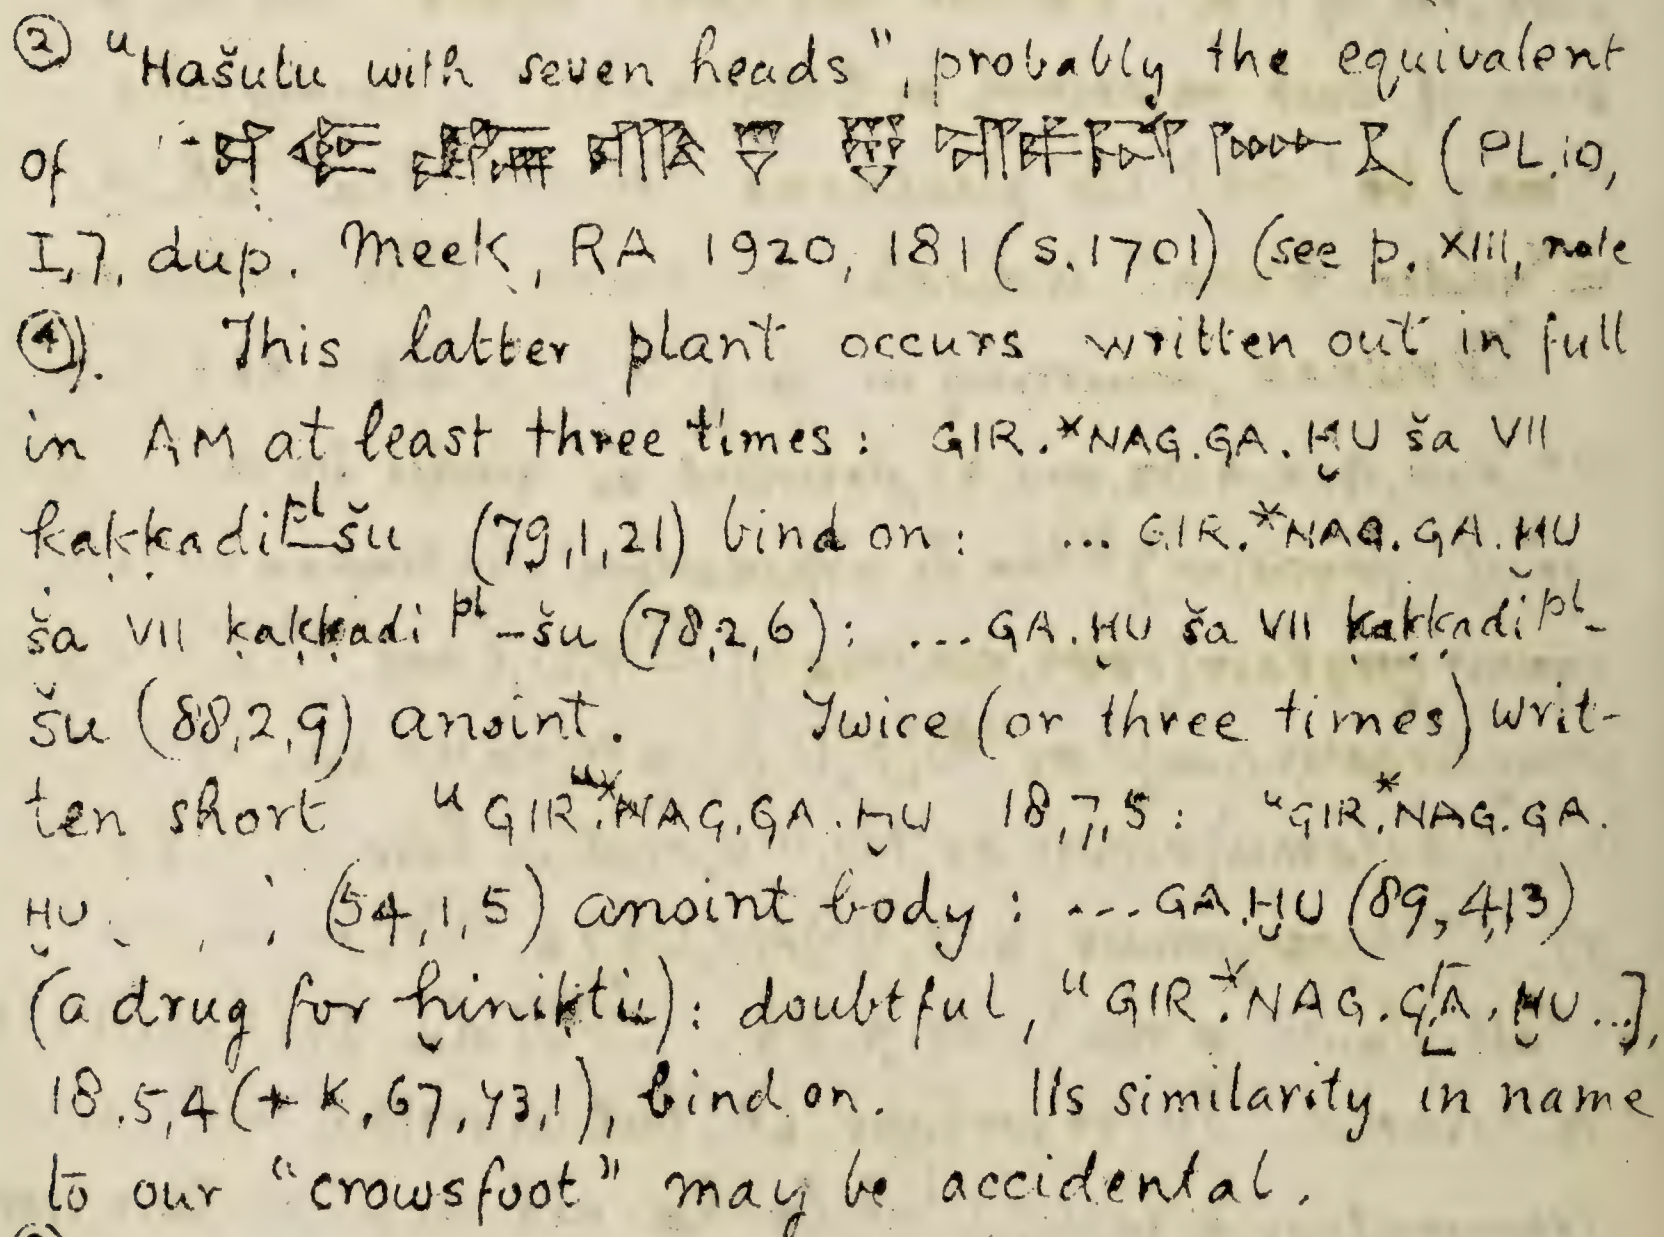 ② "Hašulu with seven heads", probably the equivalent
of (PL.10,
I,7, dup. Meek, RA 1920, 181 (S.1701) (see p. XIII, note
④). This latter plant occurs written out in full
in AM at least three times: GIR.*NAG.GA.ḪU ša VII
ḳaḳḳadi ᵖˡ-šu (79,1,21) bind on: ... GIR.*NAG.GA.ḪU
ša VII ḳaḳḳadi ᵖˡ-šu (78,2,6): ...GA.ḪU ša VII ḳaḳḳadi ᵖˡ-
šu (88,2,9) anoint. Twice (or three times) writ-
ten short ᵘGIR.*NAG.GA.ḪU 18,7,5: ᵘGIR.*NAG.GA.
ḪU (54,1,5) anoint body: ...GA.ḪU (89,4,13)
(a drug for ḫiniḳtu): doubtful, ᵘGIR.*NAG.G[A.ḪU...],
18.5,4 (+ K, 67,43,1), bind on. Its similarity in name
to our "crowsfoot" may be accidental.